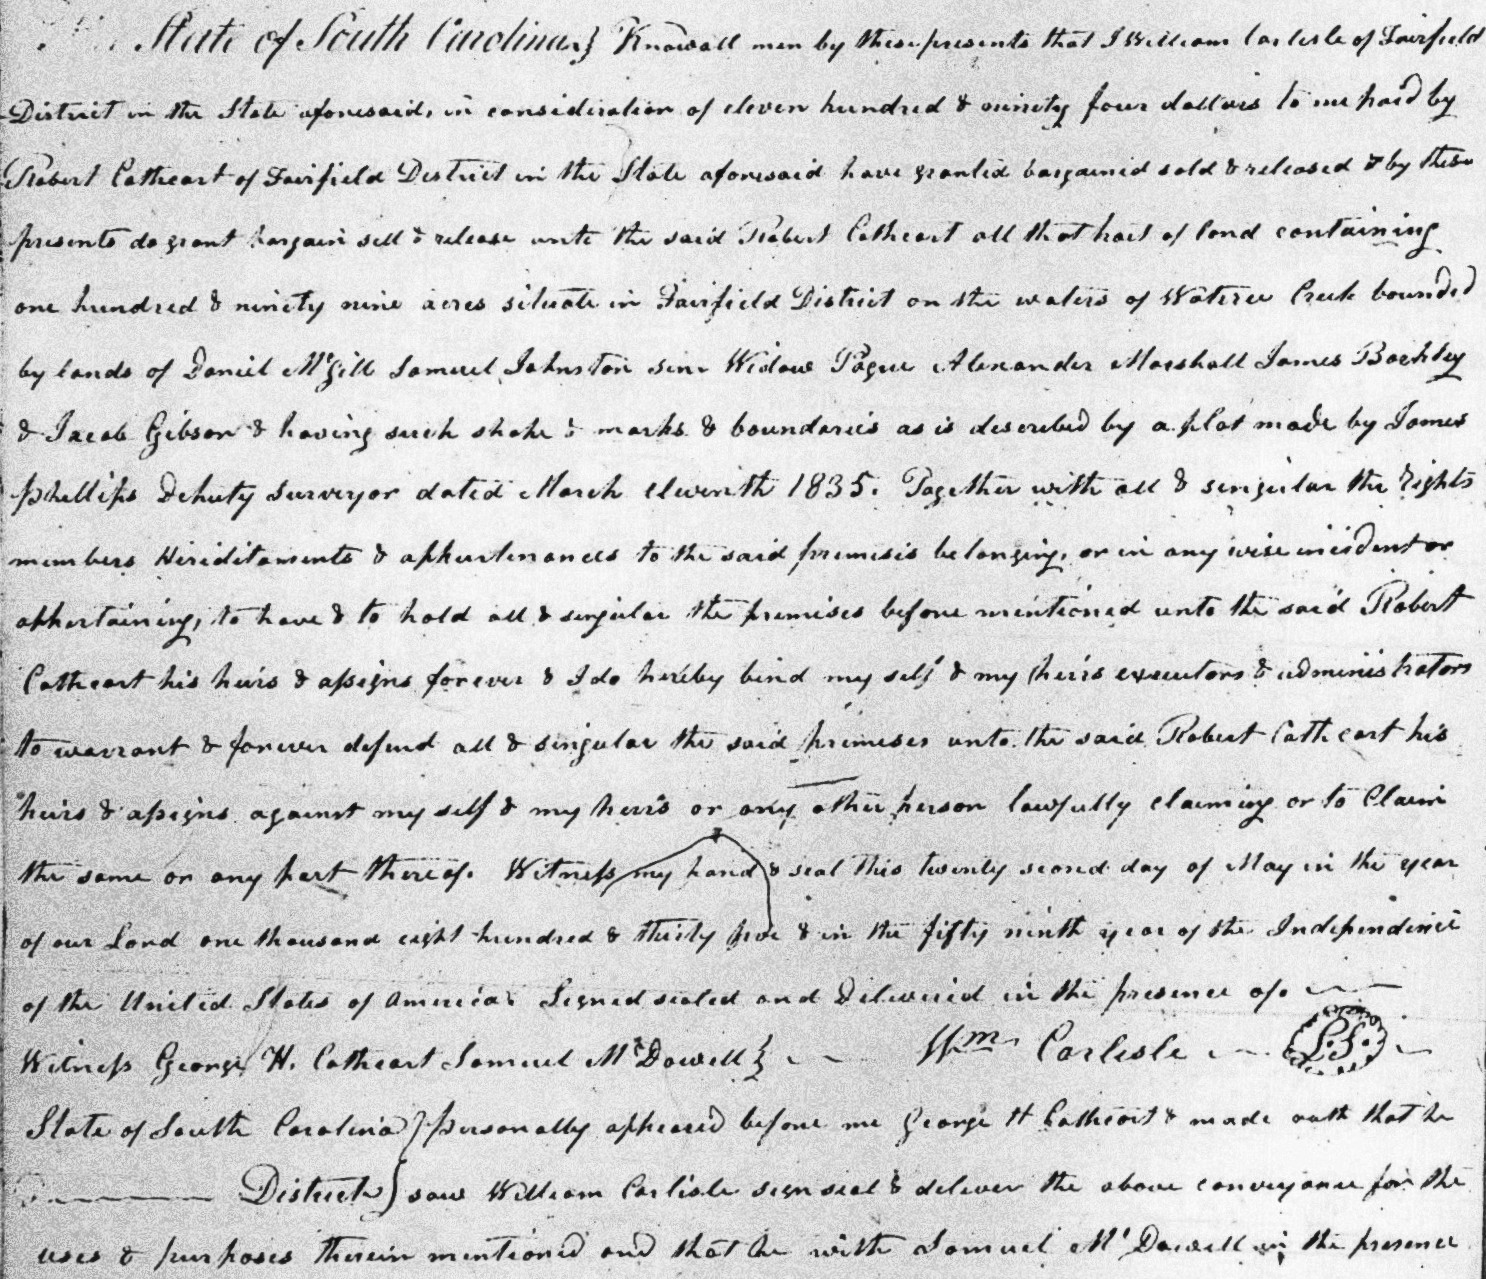 State of South Carolina } Know all men by these presents that I William Carlisle of Fairfield
District in the State aforesaid, in consideration of eleven hundred & ninety four dollars to me paid by
Robert Cathcart of Fairfield District in the State aforesaid have granted bargained sold & released & by these
presents do grant bargain sell & release unto the said Robert Cathcart all that tract of land containing
one hundred & ninety nine acres situate in Fairfield District on the waters of Wateree Creek bounded
by lands of Daniel McGill Samuel Johnston sen. Widow Pague Alexander Marshall James Barkley
& Jacob Gibson & having such shape & marks & boundaries as is described by a plat made by James
phillips Deputy Surveyor dated March eleventh 1835. Together with all & singular the rights
members Hereditaments & appurtenances to the said premises belonging, or in any wise incident or
appertaining, to have & to hold all & singular the premises before mentioned unto the said Robert
Cathcart his heirs & assigns forever & I do hereby bind my self & my heirs executors & administrators
to warrant & forever defend all & singular the said premises unto the said Robert Cathcart his
heirs & assigns against my self & my heirs or any other person lawfully claiming or to Claim
the same or any part thereof. Witness my hand & seal this twenty second day of May in the year
of our Lord one thousand eight hundred & thirty five & in the fifty ninth year of the Independence
of the United States of America. Signed sealed and Delivered in the presence of.
Witness George H. Cathcart Samuel McDowell } Wm Carlisle L.S.
State of South Carolina } personally appeared before me George H Cathcart & made oath that he
District } saw William Carlisle sign seal & deliver the above conveyance for the
uses & purposes therein mentioned and that he with Samuel McDowell in the presence